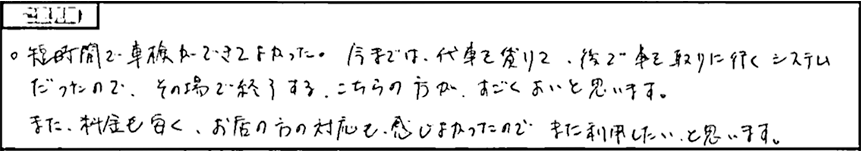 。短時間で車検ができてよかった。今までは、代車を借りて、後で車を取りに行くシステム
だったので、その場で終了する、こちらの方が、すごくよいと思います。
また、料金も安く、お店の方の対応も、感じよかったので また利用したい、と思います。